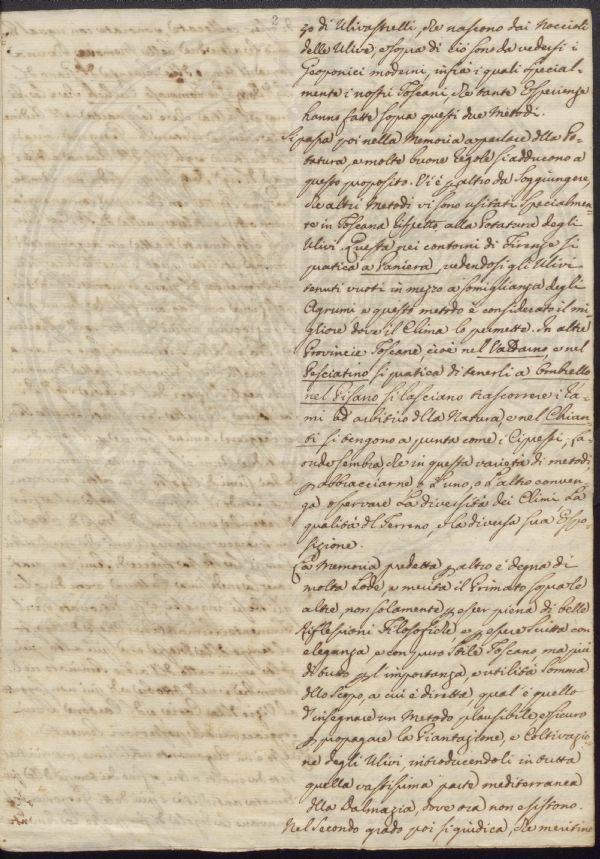 2
zo di Ulivastrelli, che nascono dai Noccioli
delle Ulive, e sopra di ciò sono da vedersi i
Geoponici moderni, infra i quali special-
mente i nostri Toscani, che tante Esperienze
hanno fatte sopra questi due Metodi.
Si passa poi nella Memoria a parlare dlla Po-
tatura, e molte buone Regole si adducono a
questo proposito. Vi è p altro da Soggiungere,
che altri Metodi vi sono usitati specialmen-
te in Toscana rispetto alla Potatura degli
Ulivi. Questa nei contorni di Firenze si
pratica a Paniera, vedendosi gli Ulivi
tenuti vuoti in mezzo a somiglianza degli
Agrumi e questo metodo è considerato il mi-
gliore dove il Clima lo permette. In altre
Provincie Toscane, cioè nel Valdarno, e nel
Pesciatino si pratica di tenerli a Ombrello
nel Pisano si lasciano trascorrere i Ra-
mi ad arbitrio dlla Natura, e nel Chian-
ti si tengono a punta come i Cipressi, la-
onde sembra, che in questa varietà di metodi,
p abbracciarne o l'uno, o l'altro conven-
ga osservare la diversità dei Climi la
qualità dl Terreno, e la diversa sua Espo-
sizione.
La Memoria predetta p altro è degna di
molta Lode, e merita il Primato sopra le
altre, non solamente p esser piena di belle
Riflessioni Filosofiche, e p essere scritta con
eleganza, e con puro Stile Toscano ma più
di tutto p l'importanza, e utilità somma
dllo Scopo, a cui è diretta, qual'è quello
d'insegnare un Metodo plausibile, e sicuro
p propagare la Piantazione, e Coltivazio-
ne degli Ulivi, introducendoli in tutta
quella vastissima parte mediterranea
dlla Dalmazia, dove ora non esistono.
Nel Secondo grado poi si giudica, che meritino